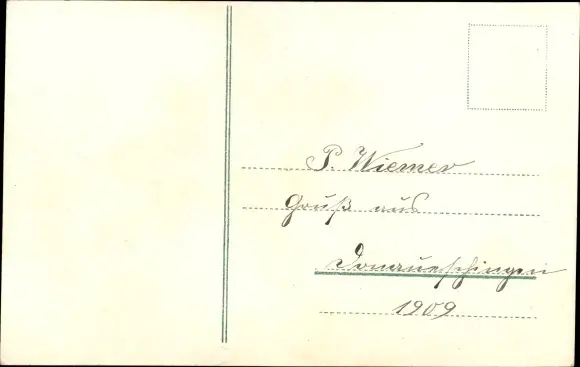 P. Wiemer
Gruß aus
Donaueschingen
1909